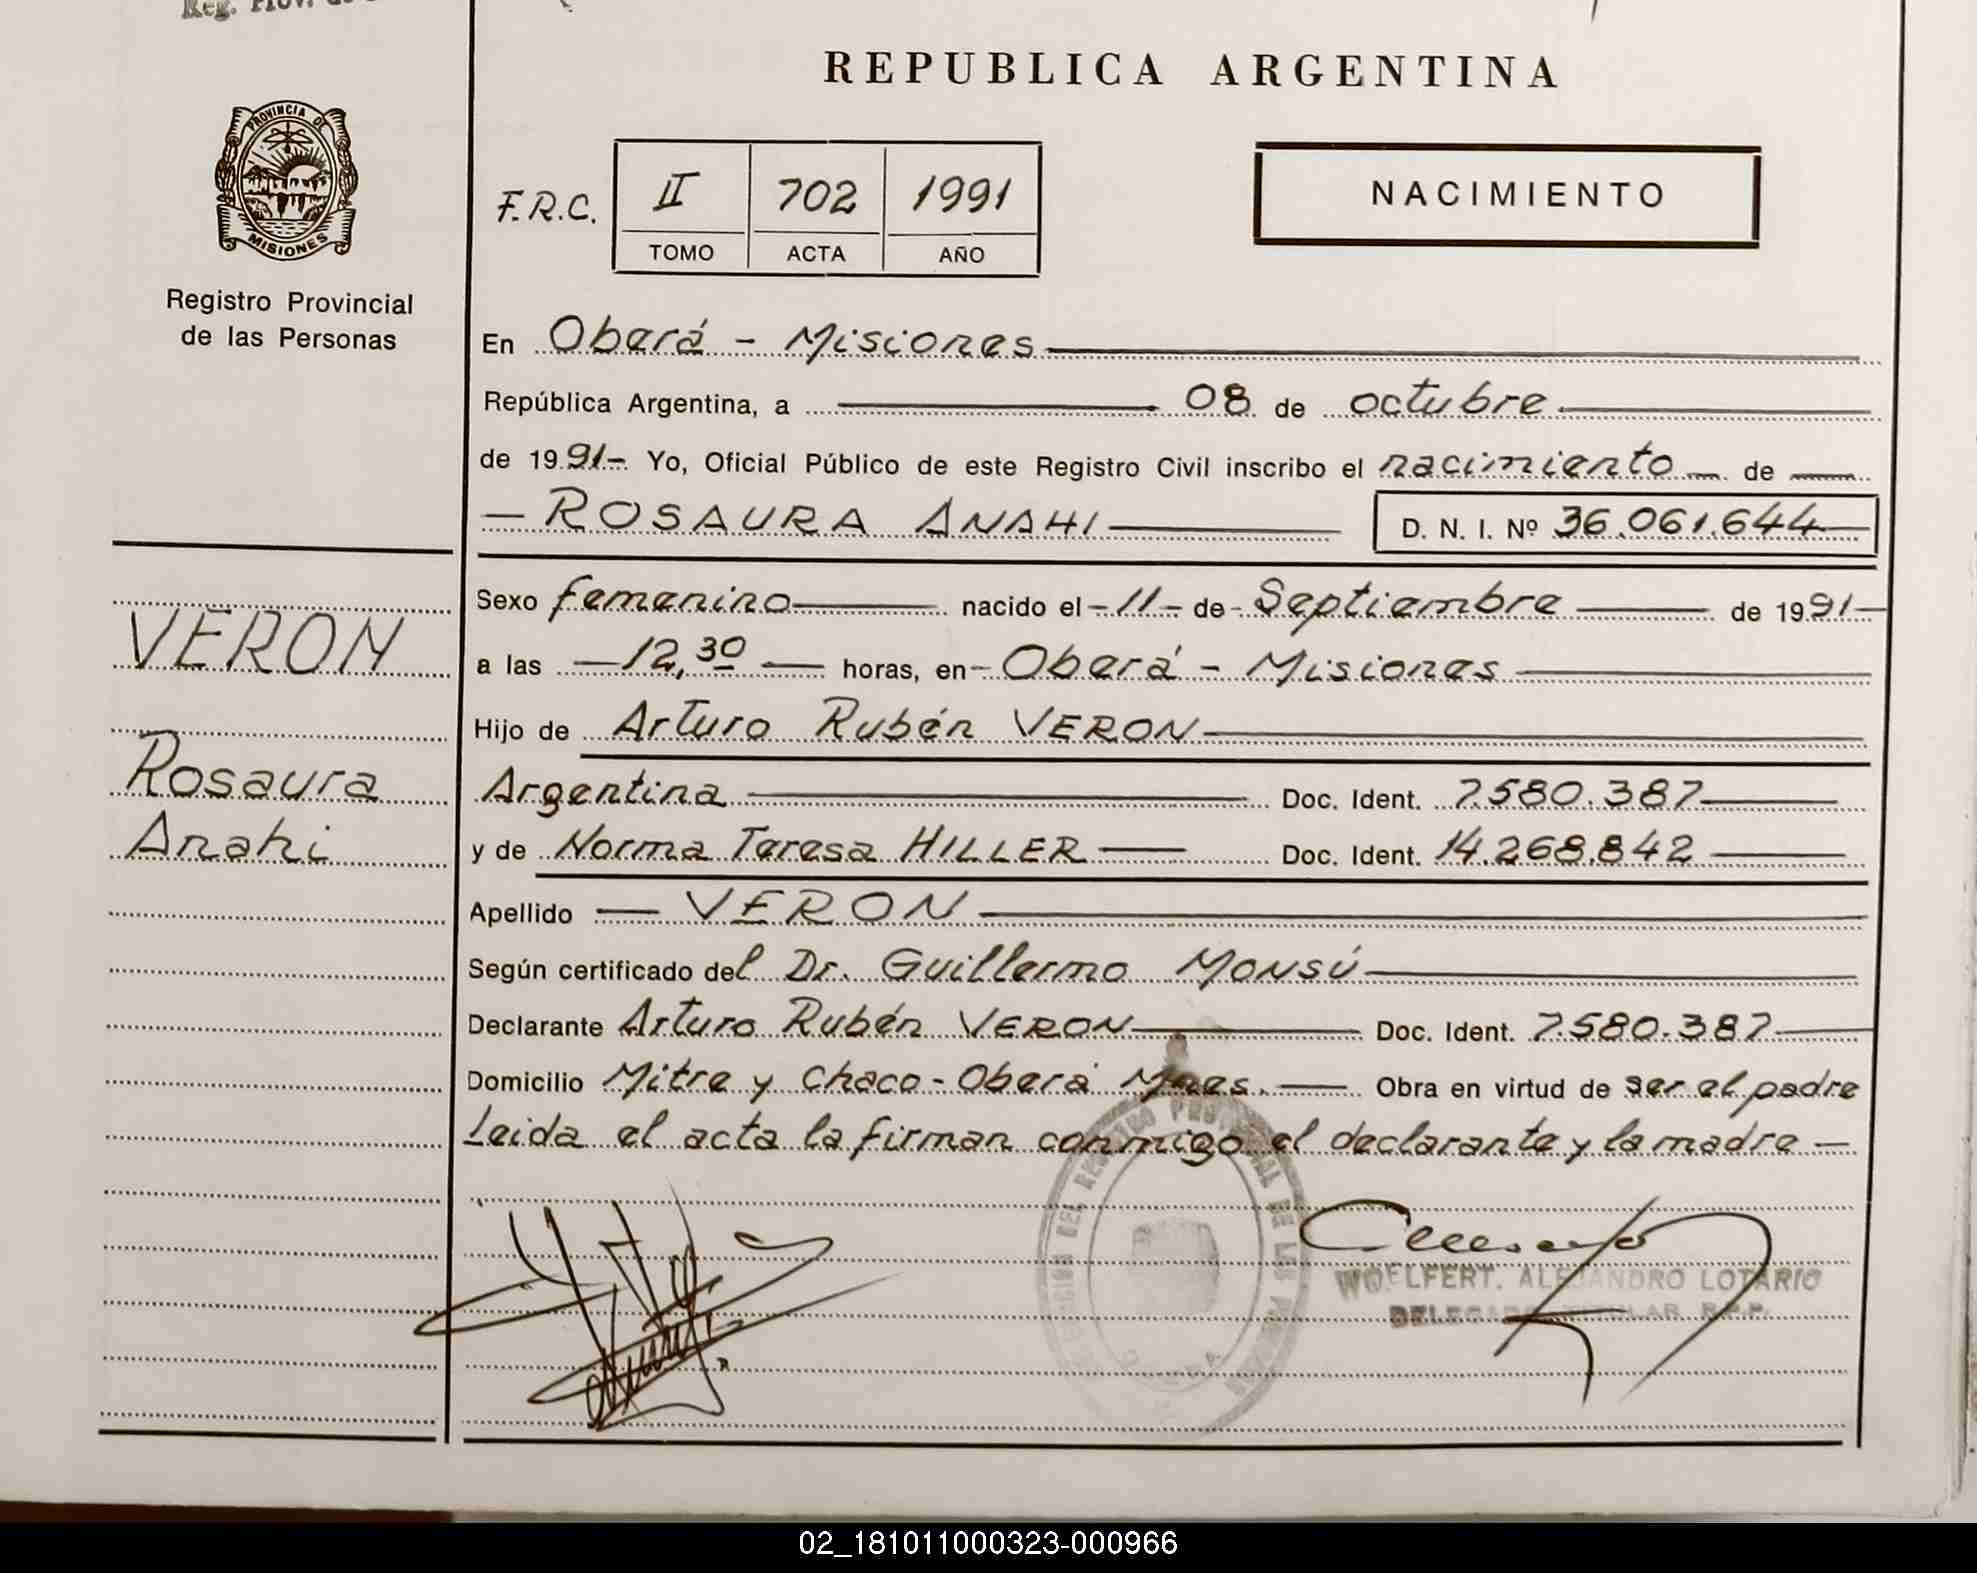 Reg. Prov. de
REPUBLICA ARGENTINA
PROVINCIA DE
MISIONES
Registro Provincial
de las Personas
F.R.C.
II 702 1991
TOMO ACTA AÑO
NACIMIENTO
En Oberá - Misiones
República Argentina, a 08 de octubre
de 1991- Yo, Oficial Público de este Registro Civil inscribo el nacimiento de
ROSAURA ANAHI
D. N. I. Nº 36.061.644
VERON
Rosaura
Anahi
Sexo femenino nacido el -11- de - Septiembre de 1991-
a las 12,30 horas, en - Oberá - Misiones
Hijo de Arturo Rubén VERON
Argentina Doc. Ident. 7.580.387
y de Norma Teresa HILLER Doc. Ident. 14.268.842
Apellido VERON
Según certificado del Dr. Guillermo Monsú
Declarante Arturo Rubén VERON Doc. Ident. 7.580.387
Domicilio Mitre y Chaco - Oberá Mnes. Obra en virtud de ser el padre
Leida el acta la firman conmigo el declarante y la madre
WOELFERT. ALEJANDRO LOTARIO
DELEGADO TITULAR R.P.P.
02_181011000323-000966